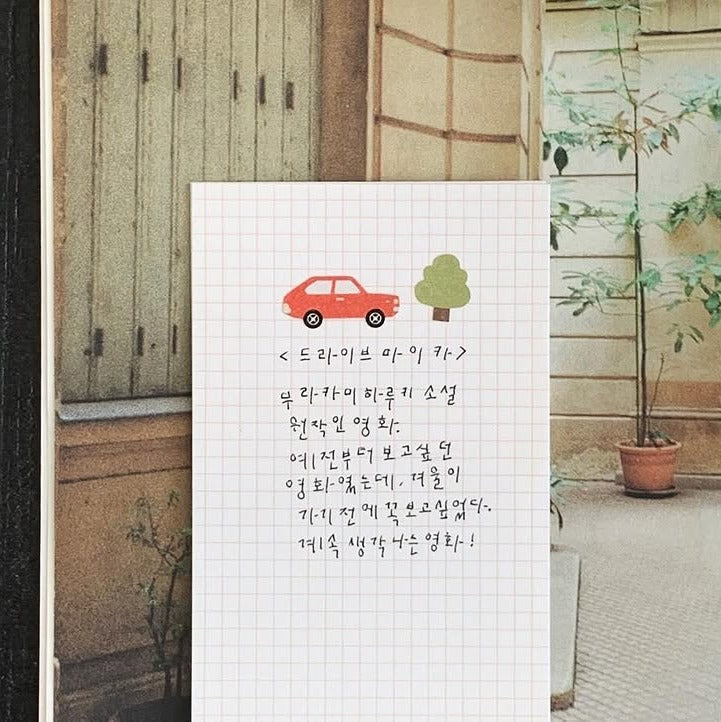 <드라이브 마이 카>
무라카미 하루키 소설
원작인 영화.
예전부터 보고싶던
영화였는데, 겨울이
가기 전에 꼭 보고싶었다.
계속 생각나는 영화!